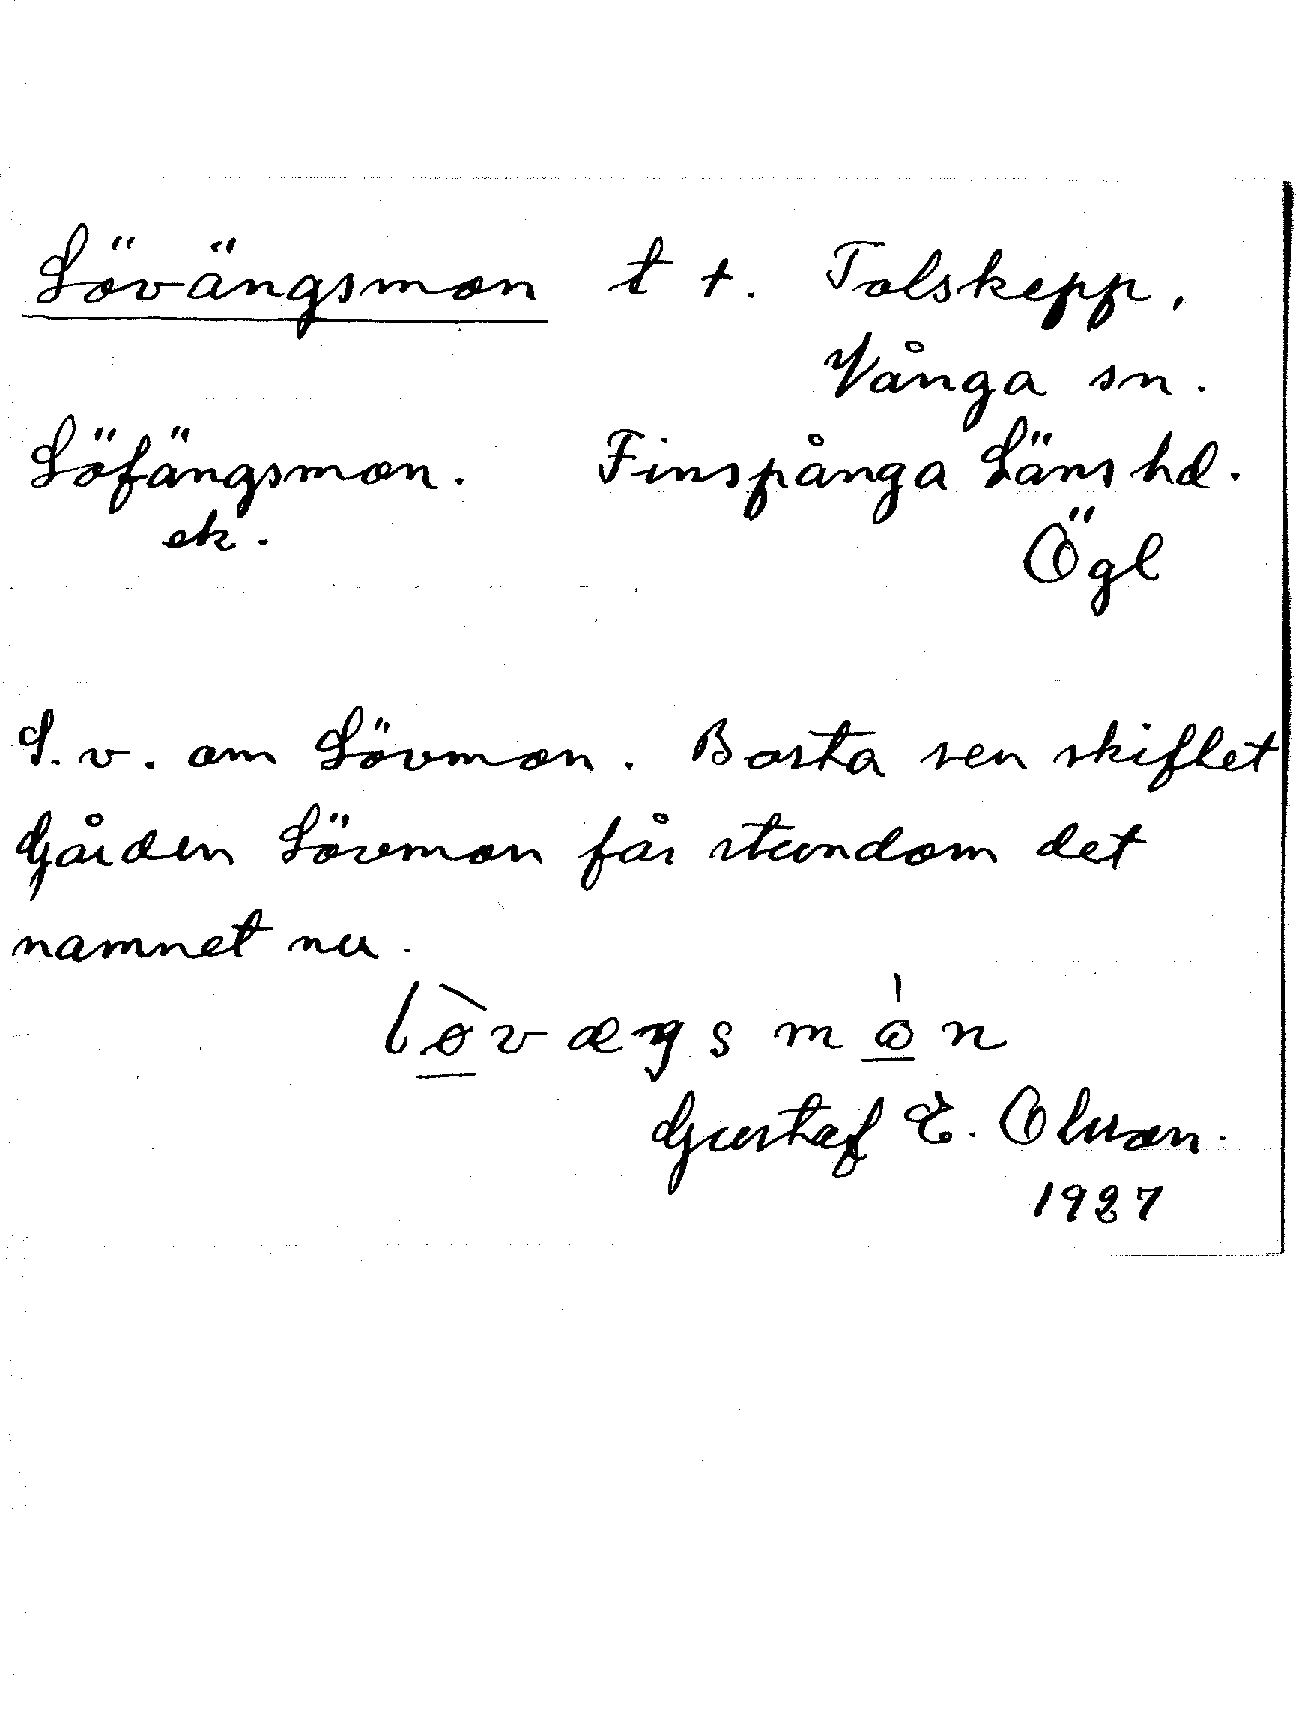 Lövängsmon t +. Tolskepp,
Vånga sn.
Löfängsmon. Finspånga Läns hd.
ek. Ögl
S. v. om Lövmon. Borta sen skiftet
Gården Lövmon får stundom det
namnet nu.
lòvæŋsmòn
Gustaf E. Olsson.
1927